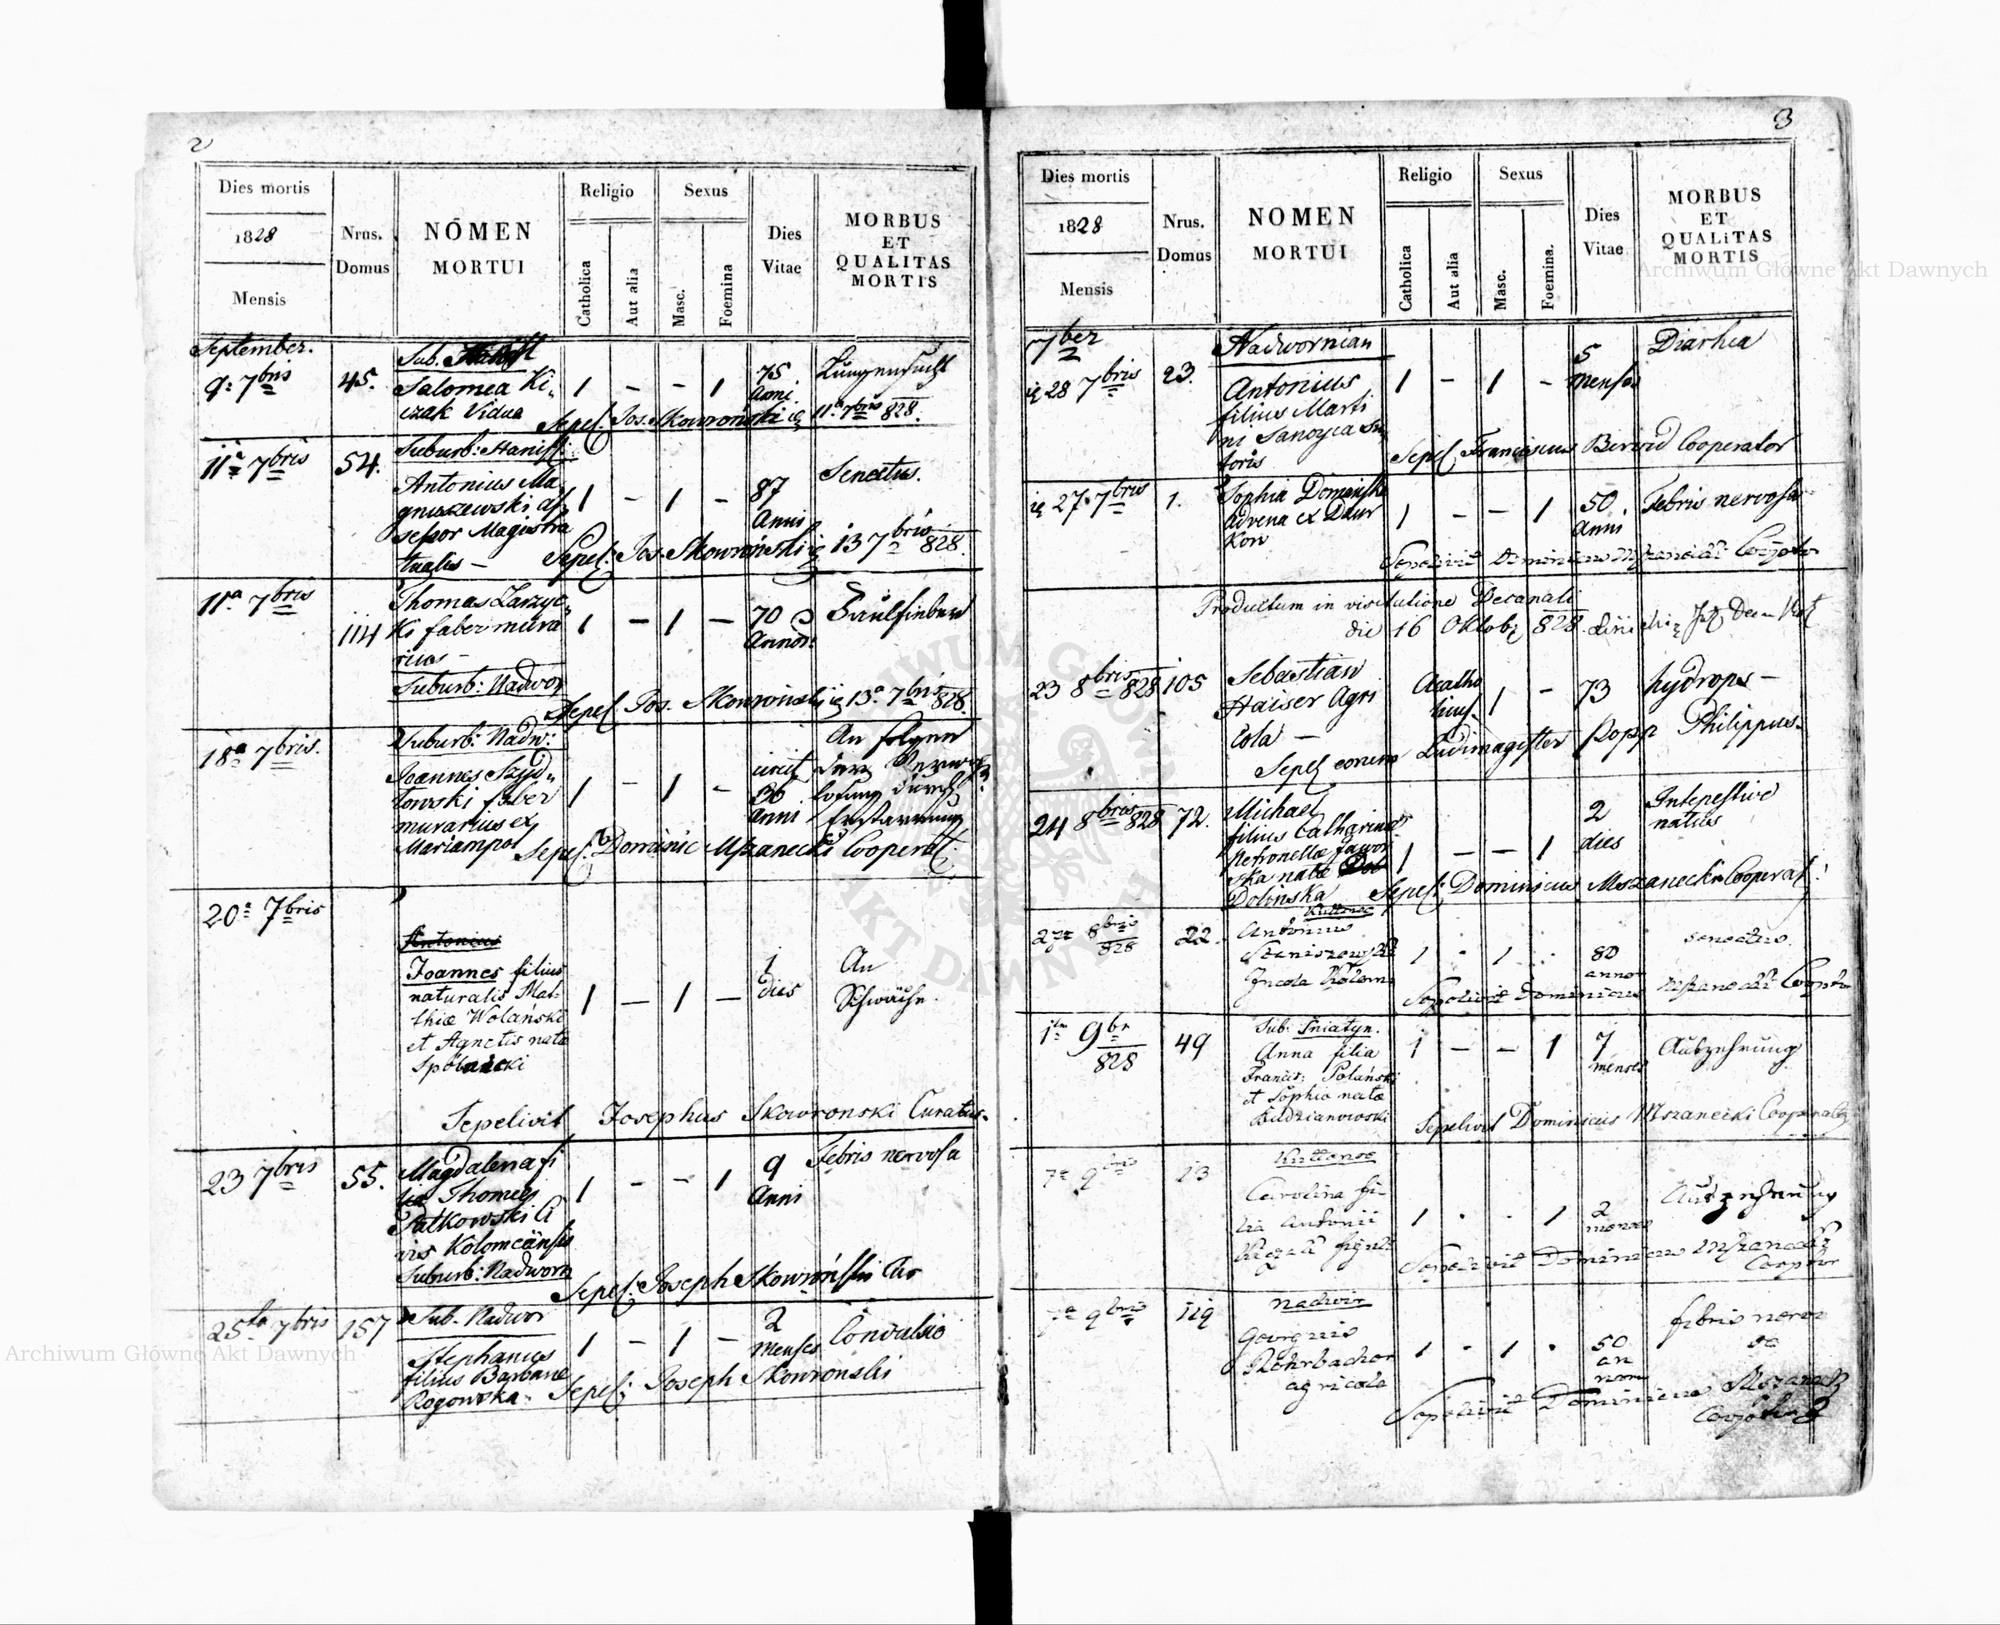 2
Dies mortis
1828
Mensis
Nrus.
Domus
NOMEN
MORTUI
Religio
Catholica
Aut alia
Sexus
Masc.
Foemina
Dies
Vitae
MORBUS
ET
QUALITAS
MORTIS
September.
9: 7bris
45.
Sub.
Salomea Ki-
czak Vidua
1 - - 1
75
Anni
Lungensucht
Sepel: Jos. Skowroński 11a 7bris 828.
11a 7bris
54.
Suburb: Stanisl:
Antonius Ma
gnuszewski As
sessor Magistra
tualis -
1 - 1 -
87
Anni
Senectus.
Sepel: Jos. Skowroński 13 7bris 828.
11a 7bris
114
Thomas Zarzyc-
ki faber mura
rius -
Suburb: Nadwor
1 - 1 -
70
Annor:
Faulfieber
Sepel: Jos. Skowroński 13a 7bris 828.
18a 7bris.
Suburb: Nadw:
Joannes Szyd-
łowski faber
murarius ex
Mariampol
1 - 1 -
36
Anni
An folgen
der
durch
Erstarrung
Sepel: Dominic Mszanecki Cooperat.
20a 7bris
Antonius
Joannes filius
naturalis Mat-
thiæ Wolański
et Agnetis nata
1 - 1 -
1
dies
An
Schwäche.
Sepelivit Josephus Skowronski Curatus.
23 7bris
55.
Magdalena fi
lia Thomae
Patkowski Ci
vis Kolomeänsis
Suburb: Nadworn
1 - - 1
9
Anni
Febris nervosa
Sepel: Joseph Skowroński Cur
25ta 7bris
157
Sub. Nadwor
Stephanus
filius Barbarae
Rogowska.
1 - 1 -
2
menses
Convulsio
Sepel: Joseph Skowronski
3
Dies mortis
1828
Mensis
Nrus.
Domus
NOMEN
MORTUI
Religio
Catholica
Aut alia
Sexus
Masc.
Foemina.
Dies
Vitae
MORBUS
ET
QUALiTAS
MORTIS
7ber
28 7bris
23.
Nadwornian
Antonius
filius Marti
ni Sanojca Su
toris
1 - 1 -
5
Menses
Diarhea
Sepel Franciscus Cooperator
27. 7bris
1.
Sophia
Advena ex
1 - - 1
50
Anni
Febris nervosa
Sepelivit Dominicus Mszanecki
Productum in visitatione Decanali
die 16 Oktob 828.
23 8bris 828
105
Sebastian
Haiser Agri
cola -
Acatho
licus
1 -
73
hydrops -
Sepel eorum Ludimagister Popp Philippus.
24 8bris 828
72.
Michael
filius Catharinae
Petronellæ Jawor
ska nata Dob
Dolinska
1 - - 1
2
dies
Intepestive
natus
Sepel: Dominicus Mszanecki Cooperat:
8bris
828
22.
Antonius
Staniszewski
Incola
1 - 1 -
80
annor
senectus.
Sepelivit Dominicus Mszanecki
1ma 9br
828
49
Sub: Sniatyn.
Anna filia
Francis: Polański
et Sophia nata
Budzianowski
1 - - 1
7
menses
Auszehrung
Sepelivit Dominicus Mszanecki Cooperator
7a 9bris
13
Carolina fi-
lia Antonii
1 - - 1
2
menses
Auszehrung
Sepelivit Dominicus Mszanecki
7a 9bris
119
Nadwor
Georgius
Rohrbacher
agricola
1 - 1 -
50
an
nor
febris nervo
sa
Sepelivit Dominicus Mszanecki
Archiwum Główne Akt Dawnych
Archiwum Główne Akt Dawnych
ARCHIWUM GŁÓWNE
AKT DAWNYCH